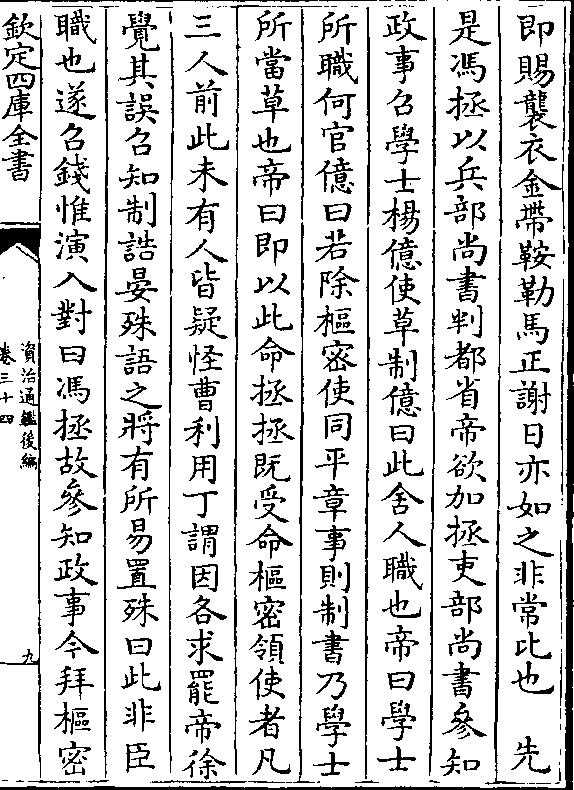 即賜襲衣金帶鞍勒馬正謝日亦如之非常比也　先
是馮拯以兵部尚書判都省帝欲加拯吏部尚書參知
政事召學士楊億使草制億曰此舍人職也帝曰學士
所職何官億曰若除樞密使同平章事則制書乃學士
所當草也帝曰即以此命拯拯既受命樞密領使者凡
三人前此未有人皆疑怪曹利用丁謂因各求罷帝徐
覺其誤召知制誥晏殊語之將有所易置殊曰此非臣
職也遂召錢惟演入對曰馮拯故參知政事今拜樞密
欽定四庫全書
資治通鑑後編
卷三十四
九